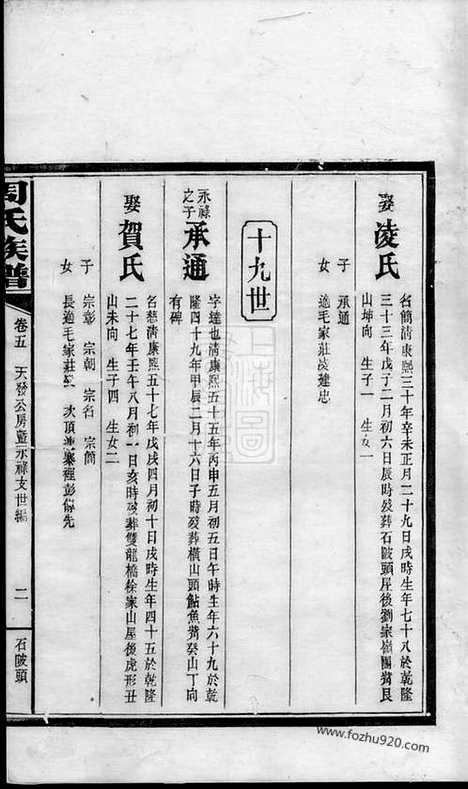 娶凌氏
名簡清康熙三十年辛未正月二十九日戌時生年七十八於乾隆
三十三年戊子二月初六日辰時歿葬石陂頭屋後劉家嶺團
山坤向 生子一 生女一
子 承通
女 適毛家莊凌建忠
十九世
永祿之子 承通
字達也清康熙五十五年丙申五月初五日午時生年六十九於乾
隆四十九年甲辰二月十六日子時歿葬橫山頭鮎魚癸山丁向
有碑
娶賀氏
名慈清康熙五十七年戊戌四月初十日戌時生年四十五於乾隆
二十七年壬午八月初一日亥時歿葬雙龍橋徐家山屋後虎形丑
山未向 生子四 生女二
子 宗彰 宗朝 宗名 宗簡
女 長適毛家莊 次頂 彭 先
周氏族譜
卷五 天發公房 永祿支世編
二
石陂頭
www.fozhu920.com